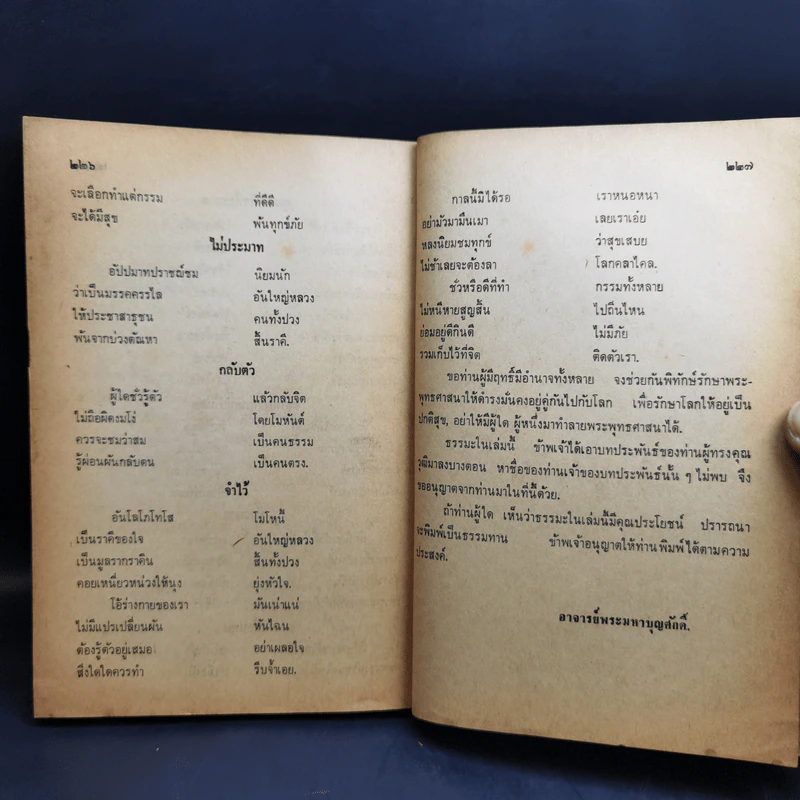 ๒๒๖
จะเลือกทำแต่กรรม ที่ดีดี
จะได้มีสุข พ้นทุกข์ภัย
ไม่ประมาท
อัปปมาทปราชญ์ชม นิยมนัก
ว่าเป็นมรรคครรไล อันใหญ่หลวง
ให้ประชาสาธุชน คนทั้งปวง
พ้นจากบ่วงตัณหา สิ้นราคี.
กลับตัว
ผู้ใดชั่วรู้ตัว แล้วกลับจิต
ไม่ถือผิดงมโง่ โดยโมหันต์
ควรจะชมว่าสม เป็นคนธรรม
รู้ผ่อนผันกลับตน เป็นคนตรง.
จำไว้
อันโลโภโทโส โมโหนี้
เป็นราคีของใจ อันใหญ่หลวง
เป็นมูลรากราคิน สิ้นทั้งปวง
คอยเหนี่ยวหน่วงให้นุง ยุ่งหัวใจ.
โอ้ร่างกายของเรา มันเน่าแน่
ไม่มีแปรเปลี่ยนผัน หันไฉน
ต้องรู้ตัวอยู่เสมอ อย่าเผลอใจ
สิ่งใดใดควรทำ รีบจ้ำเอย.
๒๒๗
กาลนี้มิได้รอ เราหนอหนา
อย่ามัวมามึนเมา เลยเราเอ๋ย
หลงนิยมชมทุกข์ ว่าสุขเสบย
ไม่ช้าเลยจะต้องลา โลกคลาไคล.
ชั่วหรือดีที่ทำ กรรมทั้งหลาย
ไม่หนีหายสูญสิ้น ไปถิ่นไหน
ย่อมอยู่ดีกินดี ไม่มีภัย
รวมเก็บไว้ที่จิต ติดตัวเรา.
ขอท่านผู้มีฤทธิ์มีอำนาจทั้งหลาย จงช่วยกันพิทักษ์รักษาพระ-
พุทธศาสนาให้ดำรงมั่นคงอยู่คู่กันไปกับโลก เพื่อรักษาโลกให้อยู่เป็น
ปกติสุข, อย่าให้มีผู้ใด ผู้หนึ่งมาทำลายพระพุทธศาสนาได้.
ธรรมะในเล่มนี้ ข้าพเจ้าได้เอาบทประพันธ์ของท่านผู้ทรงคุณ
วุฒิมาลงบางตอน หาชื่อของท่านเจ้าของบทประพันธ์นั้น ๆ ไม่พบ จึง
ขออนุญาตจากท่านมาในที่นี้ด้วย.
ถ้าท่านผู้ใด เห็นว่าธรรมะในเล่มนี้มีคุณประโยชน์ ปรารถนา
จะพิมพ์เป็นธรรมทาน ข้าพเจ้าอนุญาตให้ท่านพิมพ์ได้ตามความ
ประสงค์.
อาจารย์พระมหาบุญศักดิ์.